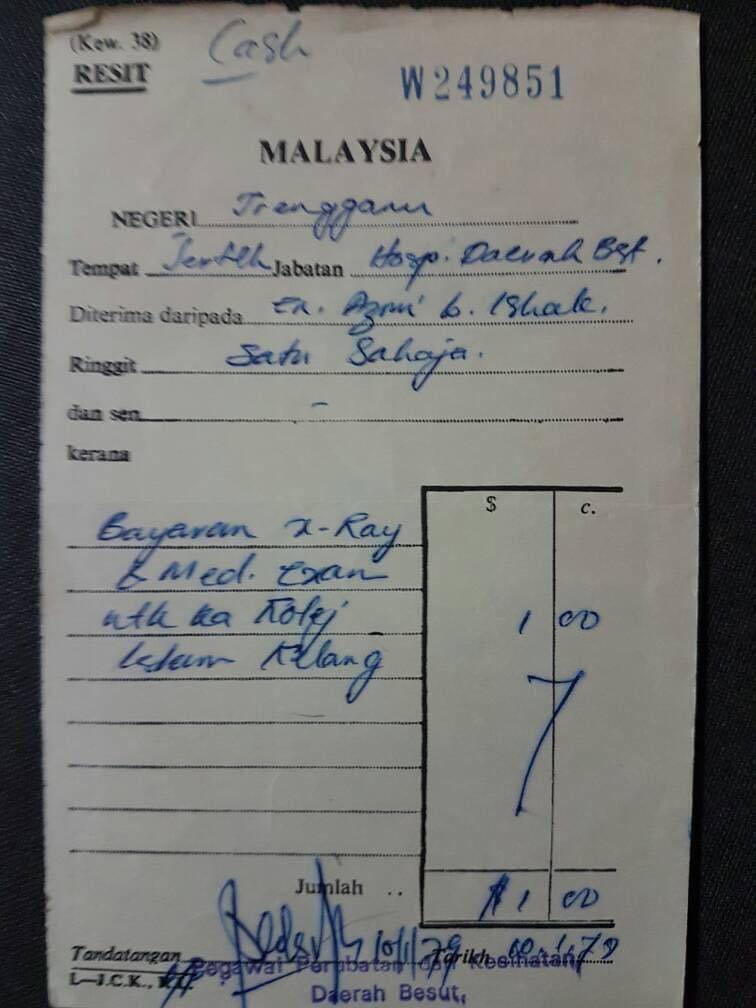 (Kew. 38) Cash
RESIT W 249851
MALAYSIA
NEGERI Trengganu
Tempat Jerteh Jabatan Hosp. Daerah Bst.
Diterima daripada En. Azmi b. Ishak.
Ringgit Satu Sahaja.
dan sen –
kerana
$ c.
Bayaran X-Ray
& Med. Exam
utk ka Kolej 1 00
Islam Kelang
Jumlah .. $1 00
Tandatangan 10/1/79 Tarikh
L—J.C.K.,
Pegawai Perubatan dan Kesihatan,
Daerah Besut,